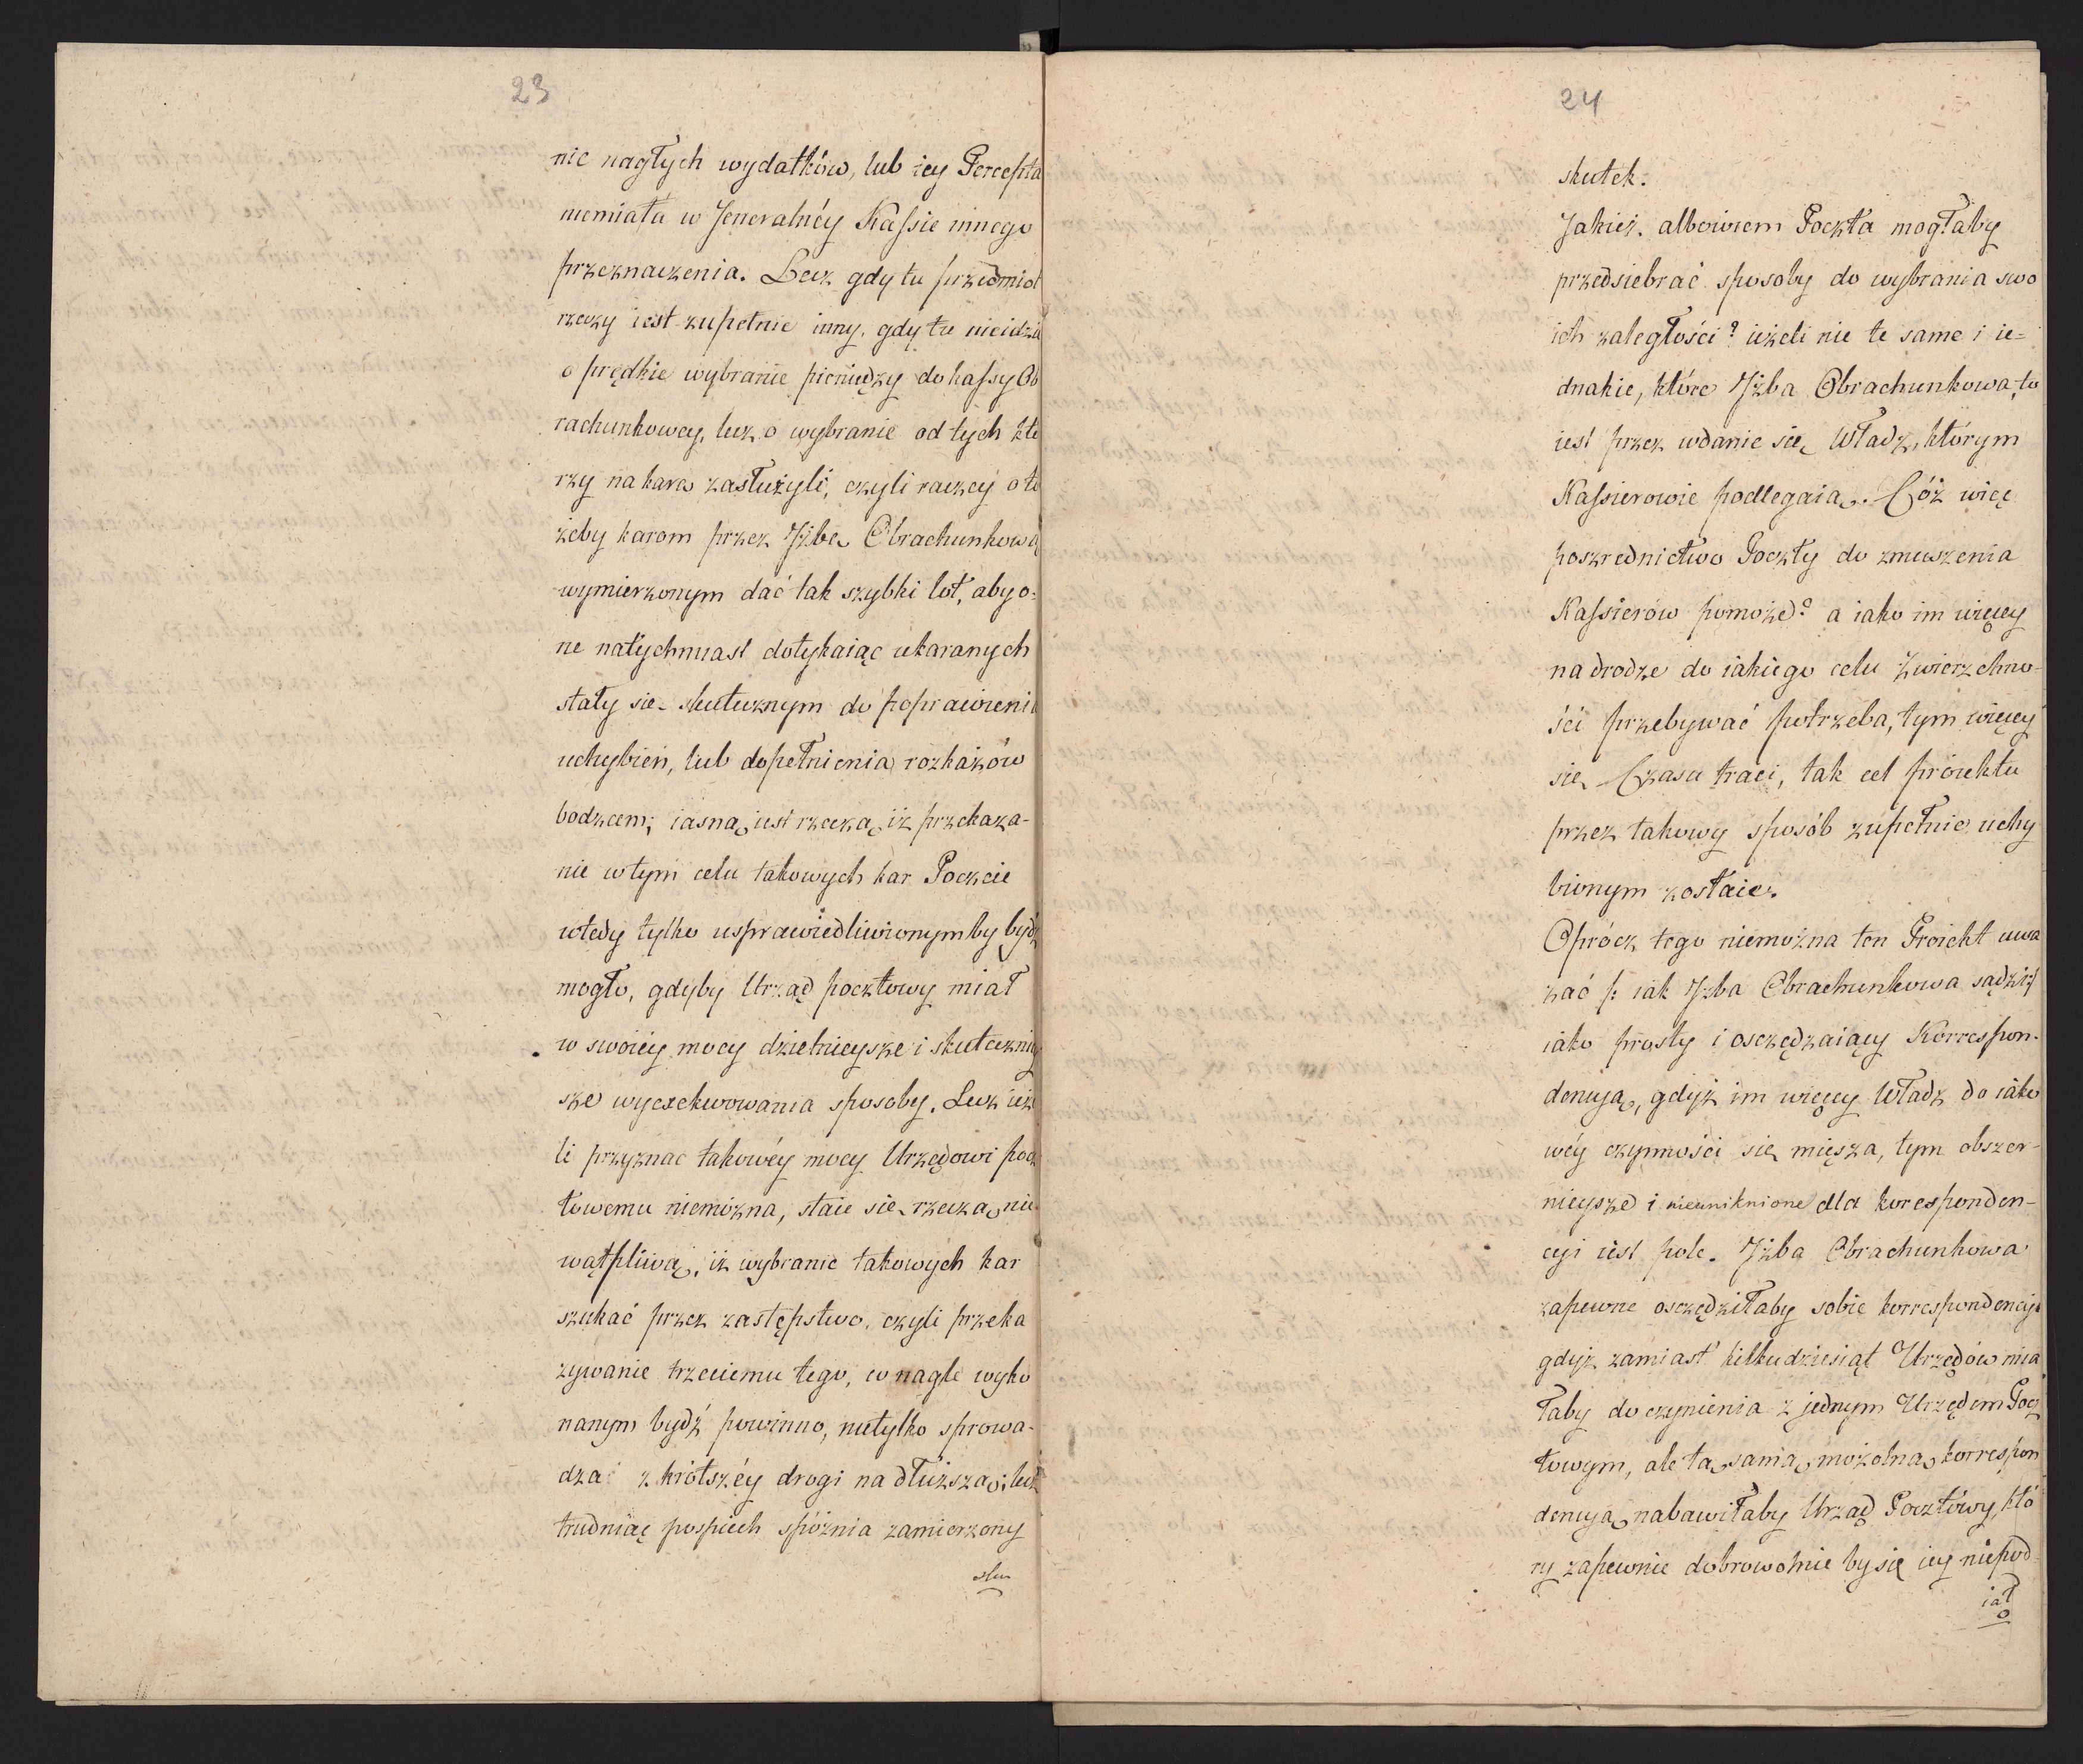 23
nie nagłych wydatków, lub iey Percepta
niemiała w Jeneralnéy Kassie innego
przeznaczenia. Lecz gdy tu przedmiot
rzeczy iest zupełnie inny, gdy tu nieidzie
o prędkie wybranie pieniędzy do kassy Ob
rachunkowey, lecz o wybranie od tych któ
rzy na karę zasłużyli, czyli raczey o to
żeby karom przez Jzbę Obrachunkową
wymierzonym dać tak szybki lot, aby o=
ne natychmiast dotykaiąc ukaranych
stały się skutecznym do poprawienia
uchybień, lub dopełnienia rozkazów
bodzcem; iasną iest rzeczą, iż przekaza-
nie w tym celu takowych kar Poczcie
wtedy tylko usprawiedliwionymby bydź
mogło, gdyby Urząd pocztowy miał
w swoiéy mocy dzielnieysze i skutecznie
sze wyexekwowania sposoby. Lecz ieże
li przyznac takowéy mocy Urzędowi pocz
towemu niemożna, staie się rzeczą nie
wątpliwą, iż wybranie takowych kar
szukać przez zastępstwo, czyli przeka
zywanie trzeciemu tego, co nagle wyko
nanym bydź powinno, nietylko sprowa-
dza z krótszéy drogi na dłuższą, lecz
trudniąc pospiech spóźnia zamierzony
sku
24
skutek.
Jakież albowiem Poczta mogłaby
przedsiebrać sposoby do wybrania swo
ich zaległości? ieżeli nie te same i ie=
dnakie, które Jzba Obrachunkowa, to
iest przez udanie się Władz, którym
Kassierowie podlegaią. Cóż więc
poszrednictwo Poczty do zmuszenia
Kassierów pomoże? a iako im więcey
na drodze do iakiego celu Zwierzchno-
ści przebywać potrzeba, tym więcey
się Czasu traci, tak cel proiektu
przez takowy sposób zupełnie uchy
bionym zostaie.
Oprócz tego niemożna ten Proiekt uwa
żać /: iak Jzba Obrachunkowa sądzi :/
iako prosty i osczędzaiący Korrespon-
dencyą, gdyż im więcey Władz do iako
wéy czynności się mięsza, tym obszer-
nieysze i nieuniknione dla korresponden-
cyi iest pole. Jzba Obrachunkowa
zapewne osczędziłaby sobie korrespondencyi
gdyż zamiast kilkudziesiąt Urzędów mia
łaby do czynienia z jednym Urzędem Pocz
towym, ale tą samą możolną korrespon
dencyą nabawiłaby Urząd Pocztowy, któ
ry zapewnie dobrowolnie by się iey niepod
iął